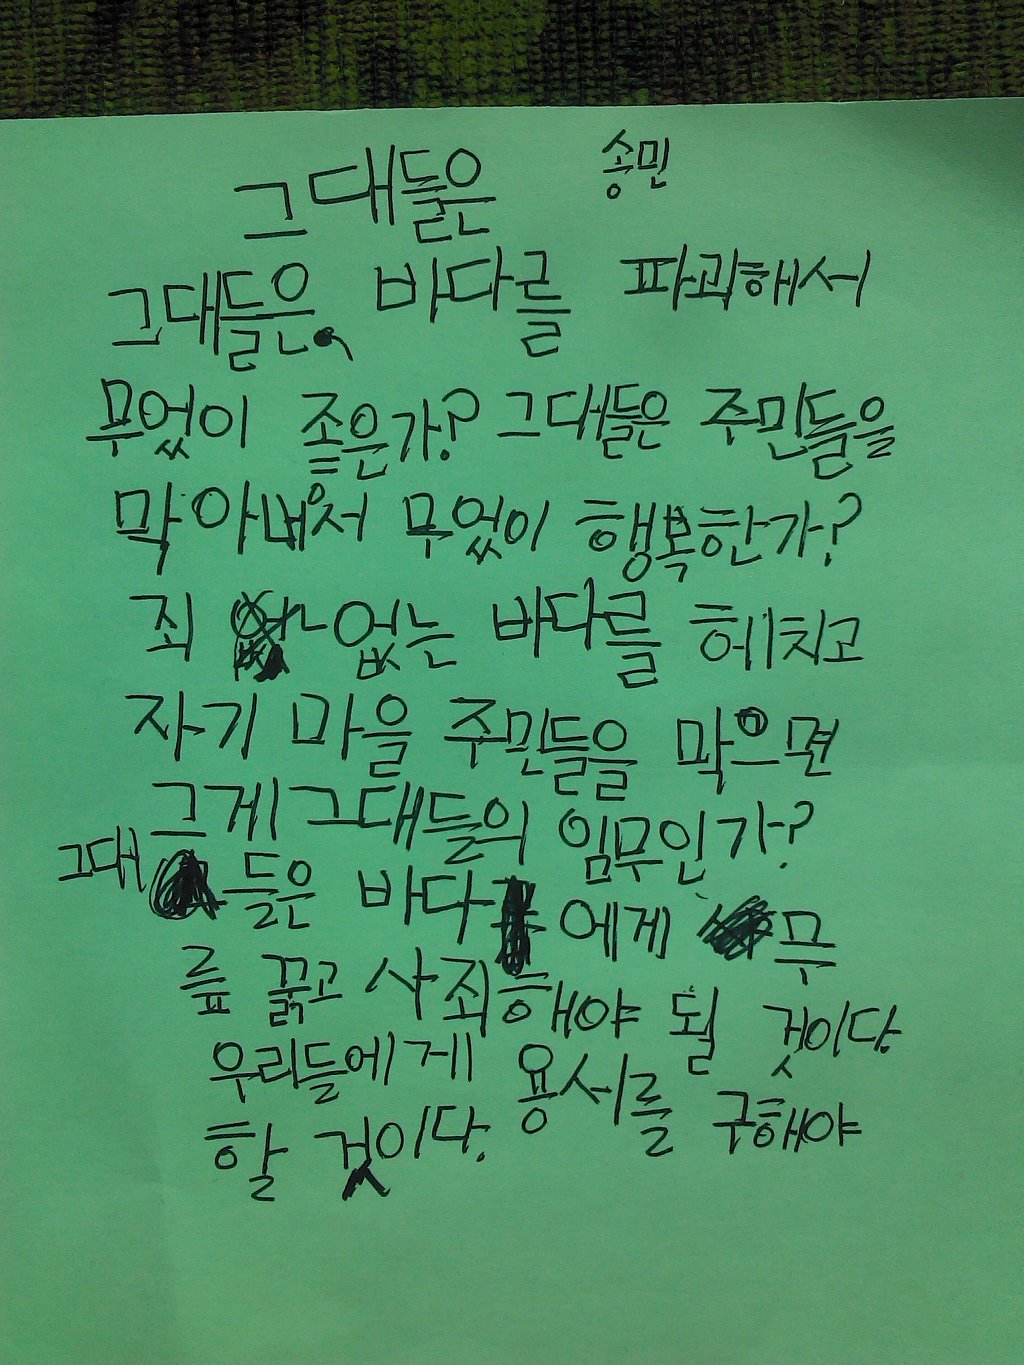 그대들은 송민
그대들은, 바다를 파괴해서
무엇이 좋은가? 그대들은 주민들을
막아내서 무엇이 행복한가?
죄 없는 바다를 헤치고
자기 마을 주민들을 막으면
그게 그대들의 임무인가?
그대들은 바다에게 무
릎 꿇고 사죄해야 될 것이다.
우리들에게 용서를 구해야
할 것이다.